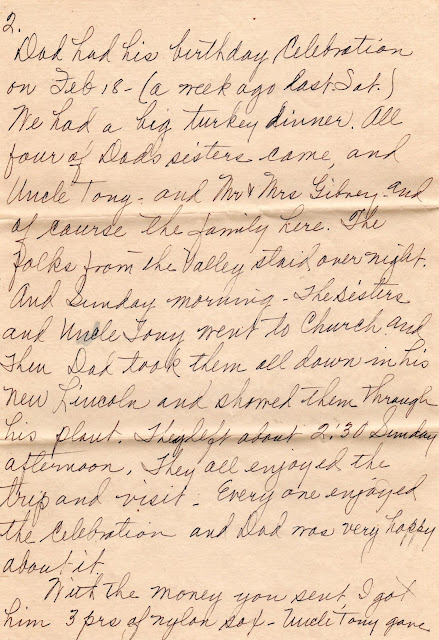 2.
Dad had his birthday Celebration
on Feb 18 - (a week ago last Sat.)
We had a big turkey dinner. All
four of Dad's sisters came, and
Uncle Tony - and Mr & Mrs Gibney - and
of course the family here. The
folks from the Valley staid over night.
And Sunday morning - The Sisters
and Uncle Tony went to Church and
Then Dad took them all down in his
new Lincoln and showed them through
his plant. They left about 2:30 Sunday
afternoon. They all enjoyed the
trip and visit - Every one enjoyed
the Celebration and Dad was very happy
about it.
With the money you sent I got
him 3 prs of nylon sox - Uncle Tony gave